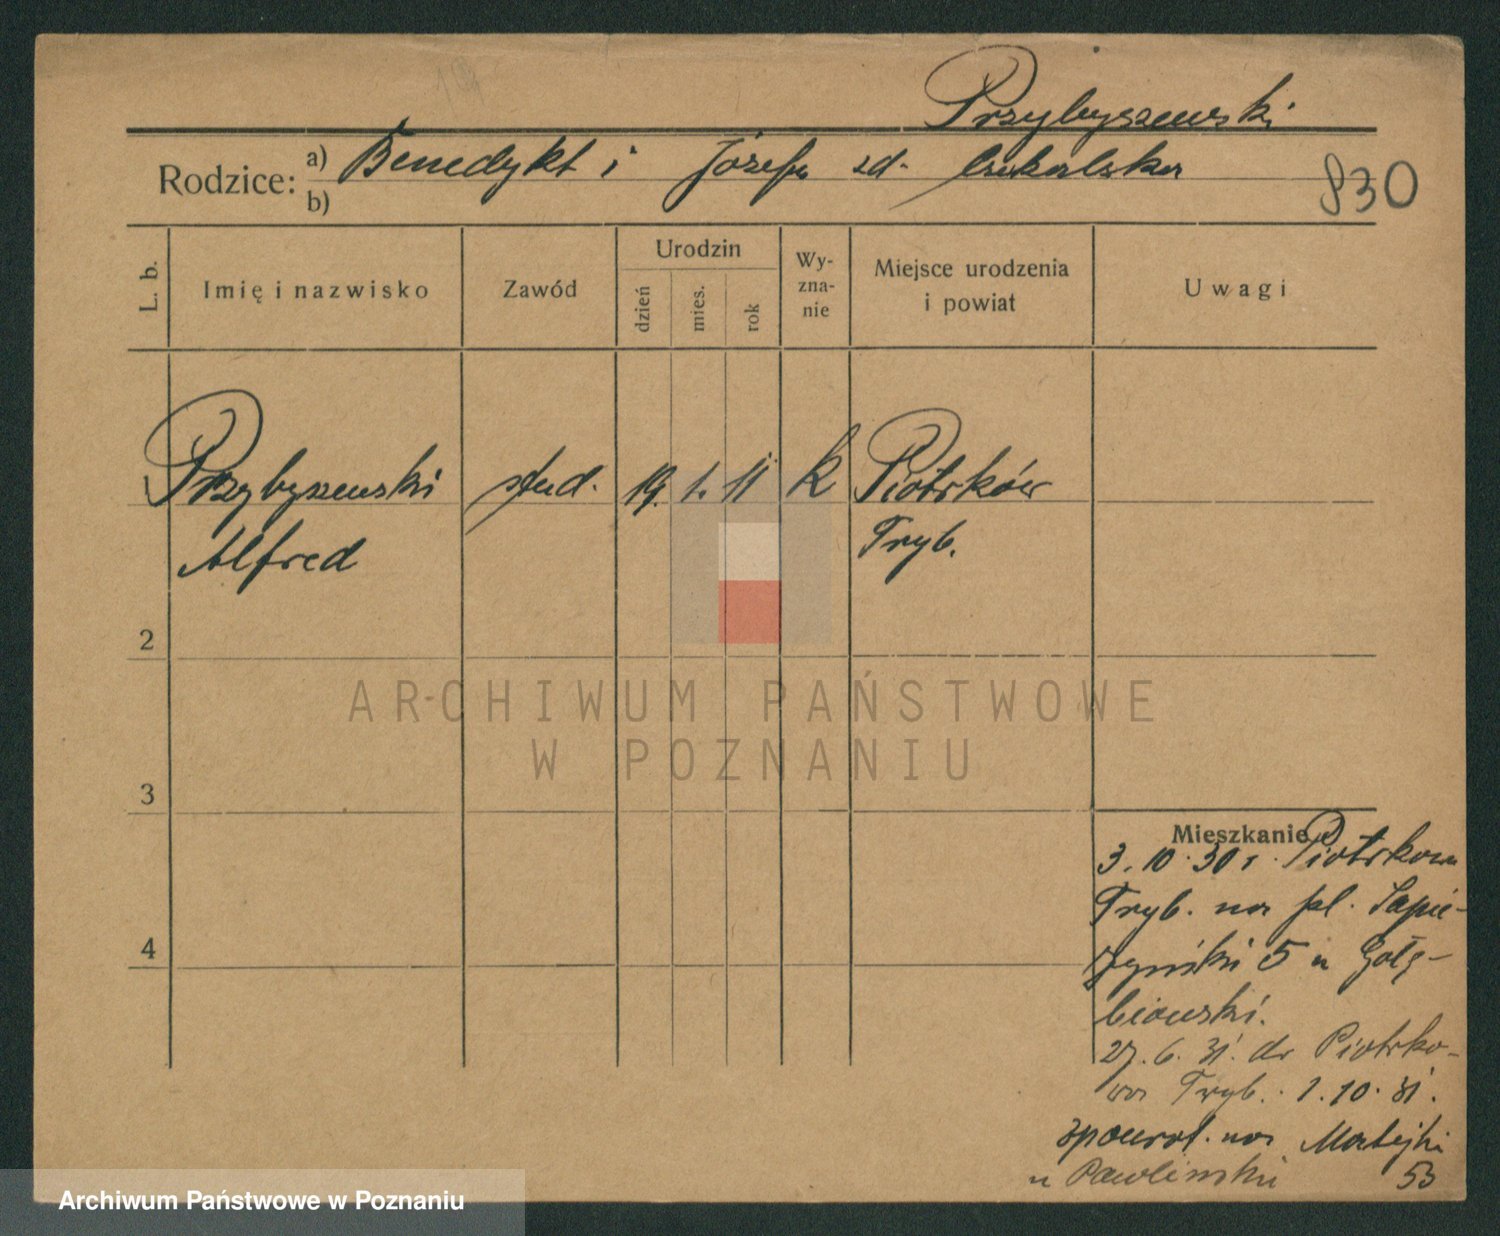 Przybyszewski
Rodzice: a) Benedykt i Józefa zd.
b)
830
L. b.
Imię i nazwisko
Zawód
Urodzin
dzień
mies.
rok
Wy-
zna-
nie
Miejsce urodzenia
i powiat
Uwagi
Przybyszewski stud. 19. 1. 11 k Piotrków
Alfred Tryb.
2
3
4
ARCHIWUM PAŃSTWOWE
W POZNANIU
Mieszkanie
3. 10. 30 r. Piotrkowa
Tryb. na pl. Sapie-
żyński 5 u Gołę-
biowski.
27. 6. 31. do Piotrko-
wa Tryb. 1. 10. 31.
zpowrot. na Matejki
u 53
Archiwum Państwowe w Poznaniu